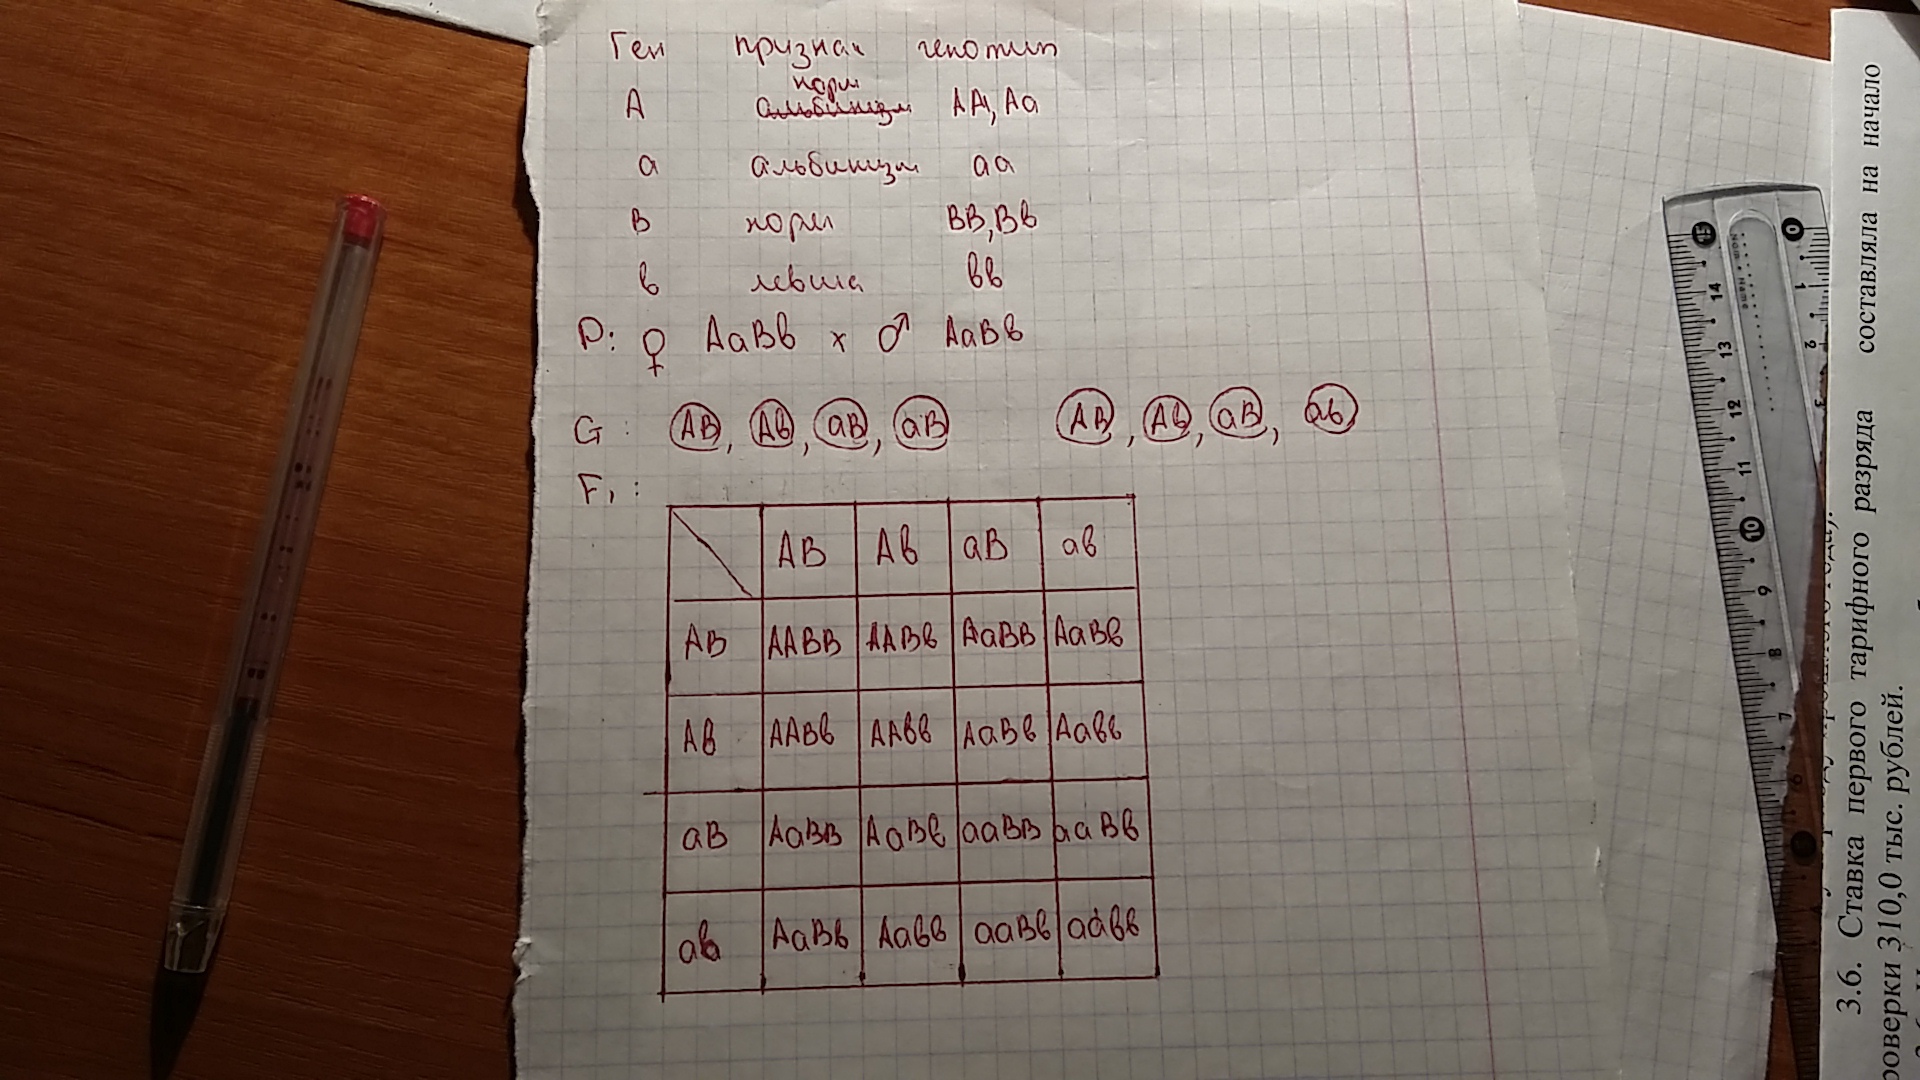 Ген признак генотип
норм
А альбинизм АА, Аа
а альбинизм аа
В норм ВВ, Вв
в левша вв
Р: ♀ АаВв х ♂ АаВв
G: АВ, Ав, аВ, аВ АВ, Ав, аВ, ав
F₁:
АВ Ав аВ ав
АВ ААВВ ААВв АаВВ АаВв
Ав ААВв ААвв АаВв Аавв
аВ АаВВ АаВв ааВВ ааВв
ав АаВв Аавв ааВв аавв
3.6. Ставка первого тарифного разряда составляла на начало
роверки 310,0 тыс. рублей.
15 14 13 12 11 10 9 8 7 6
0 1 2 3
Nom - Name